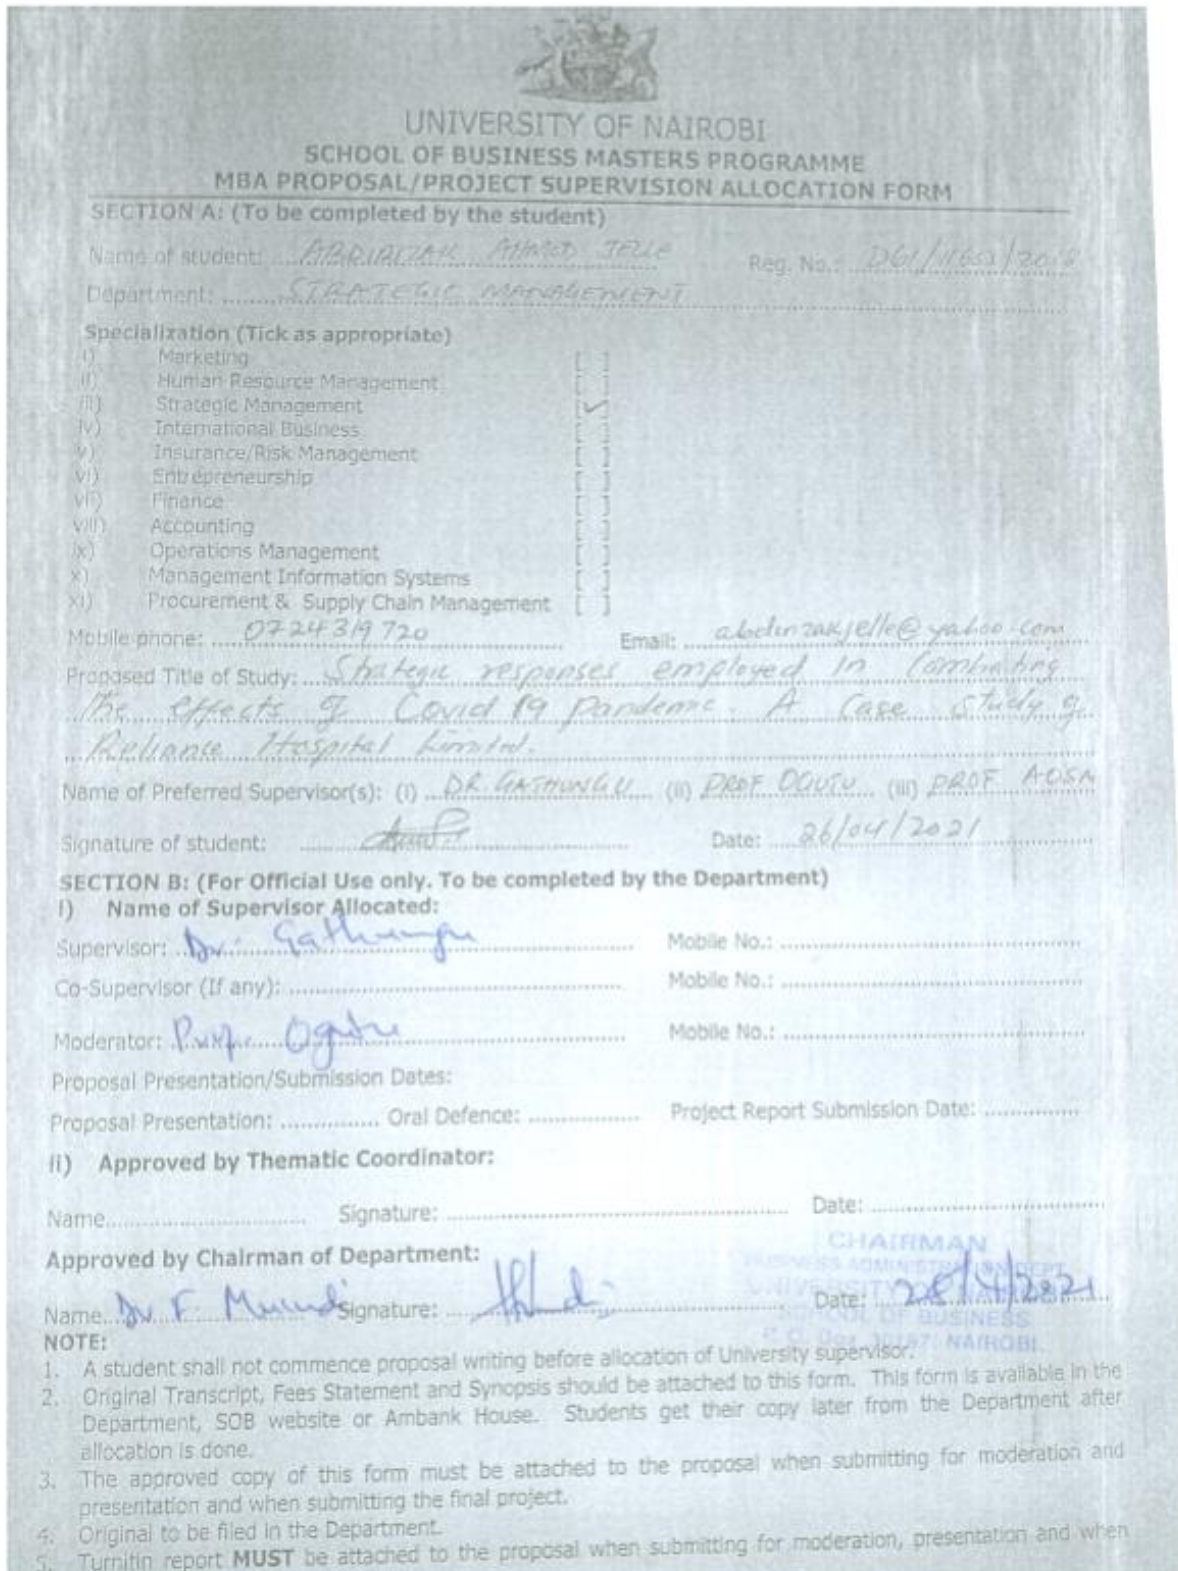 UNIVERSITY OF NAIROBI
SCHOOL OF BUSINESS MASTERS PROGRAMME
MBA PROPOSAL/PROJECT SUPERVISION ALLOCATION FORM
SECTION A: (To be completed by the student)
Name of student: ABDIRIZAK AHMED JELLE Reg. No.: D61/ /2018
Department: STRATEGIC MANAGEMENT
Specialization (Tick as appropriate)
i) Marketing [ ]
ii) Human Resource Management [ ]
iii) Strategic Management [✓]
iv) International Business [ ]
v) Insurance/Risk Management [ ]
vi) Entrepreneurship [ ]
vii) Finance [ ]
viii) Accounting [ ]
ix) Operations Management [ ]
x) Management Information Systems [ ]
xi) Procurement & Supply Chain Management [ ]
Mobile phone: 0724319720 Email: abdirizakjelle@yahoo.com
Proposed Title of Study: Strategic responses employed in Combating
the effects of Covid 19 Pandemic. A Case Study of
Reliance Hospital Limited.
Name of Preferred Supervisor(s): (i) DR. GATHUNGU (ii) PROF OGUTU (iii) PROF AOSA
Signature of student: Date: 26/04/2021
SECTION B: (For Official Use only. To be completed by the Department)
i) Name of Supervisor Allocated:
Supervisor: Dr. Gathungu Mobile No.:
Co-Supervisor (If any): Mobile No.:
Moderator: Prof. Ogutu Mobile No.:
Proposal Presentation/Submission Dates:
Proposal Presentation: Oral Defence: Project Report Submission Date:
ii) Approved by Thematic Coordinator:
Name Signature: Date:
CHAIRMAN
Approved by Chairman of Department:
BUSINESS ADMINISTRATION DEPT
UNIVERSITY OF NAIROBI
Name Dr. F. Signature: Date: 28/4/2021
SCHOOL OF BUSINESS
P. O. Box 30197, NAIROBI.
NOTE:
1. A student shall not commence proposal writing before allocation of University supervisor.
2. Original Transcript, Fees Statement and Synopsis should be attached to this form. This form is available in the
Department, SOB website or Ambank House. Students get their copy later from the Department after
allocation is done.
3. The approved copy of this form must be attached to the proposal when submitting for moderation and
presentation and when submitting the final project.
4. Original to be filed in the Department.
5. Turnitin report MUST be attached to the proposal when submitting for moderation, presentation and when